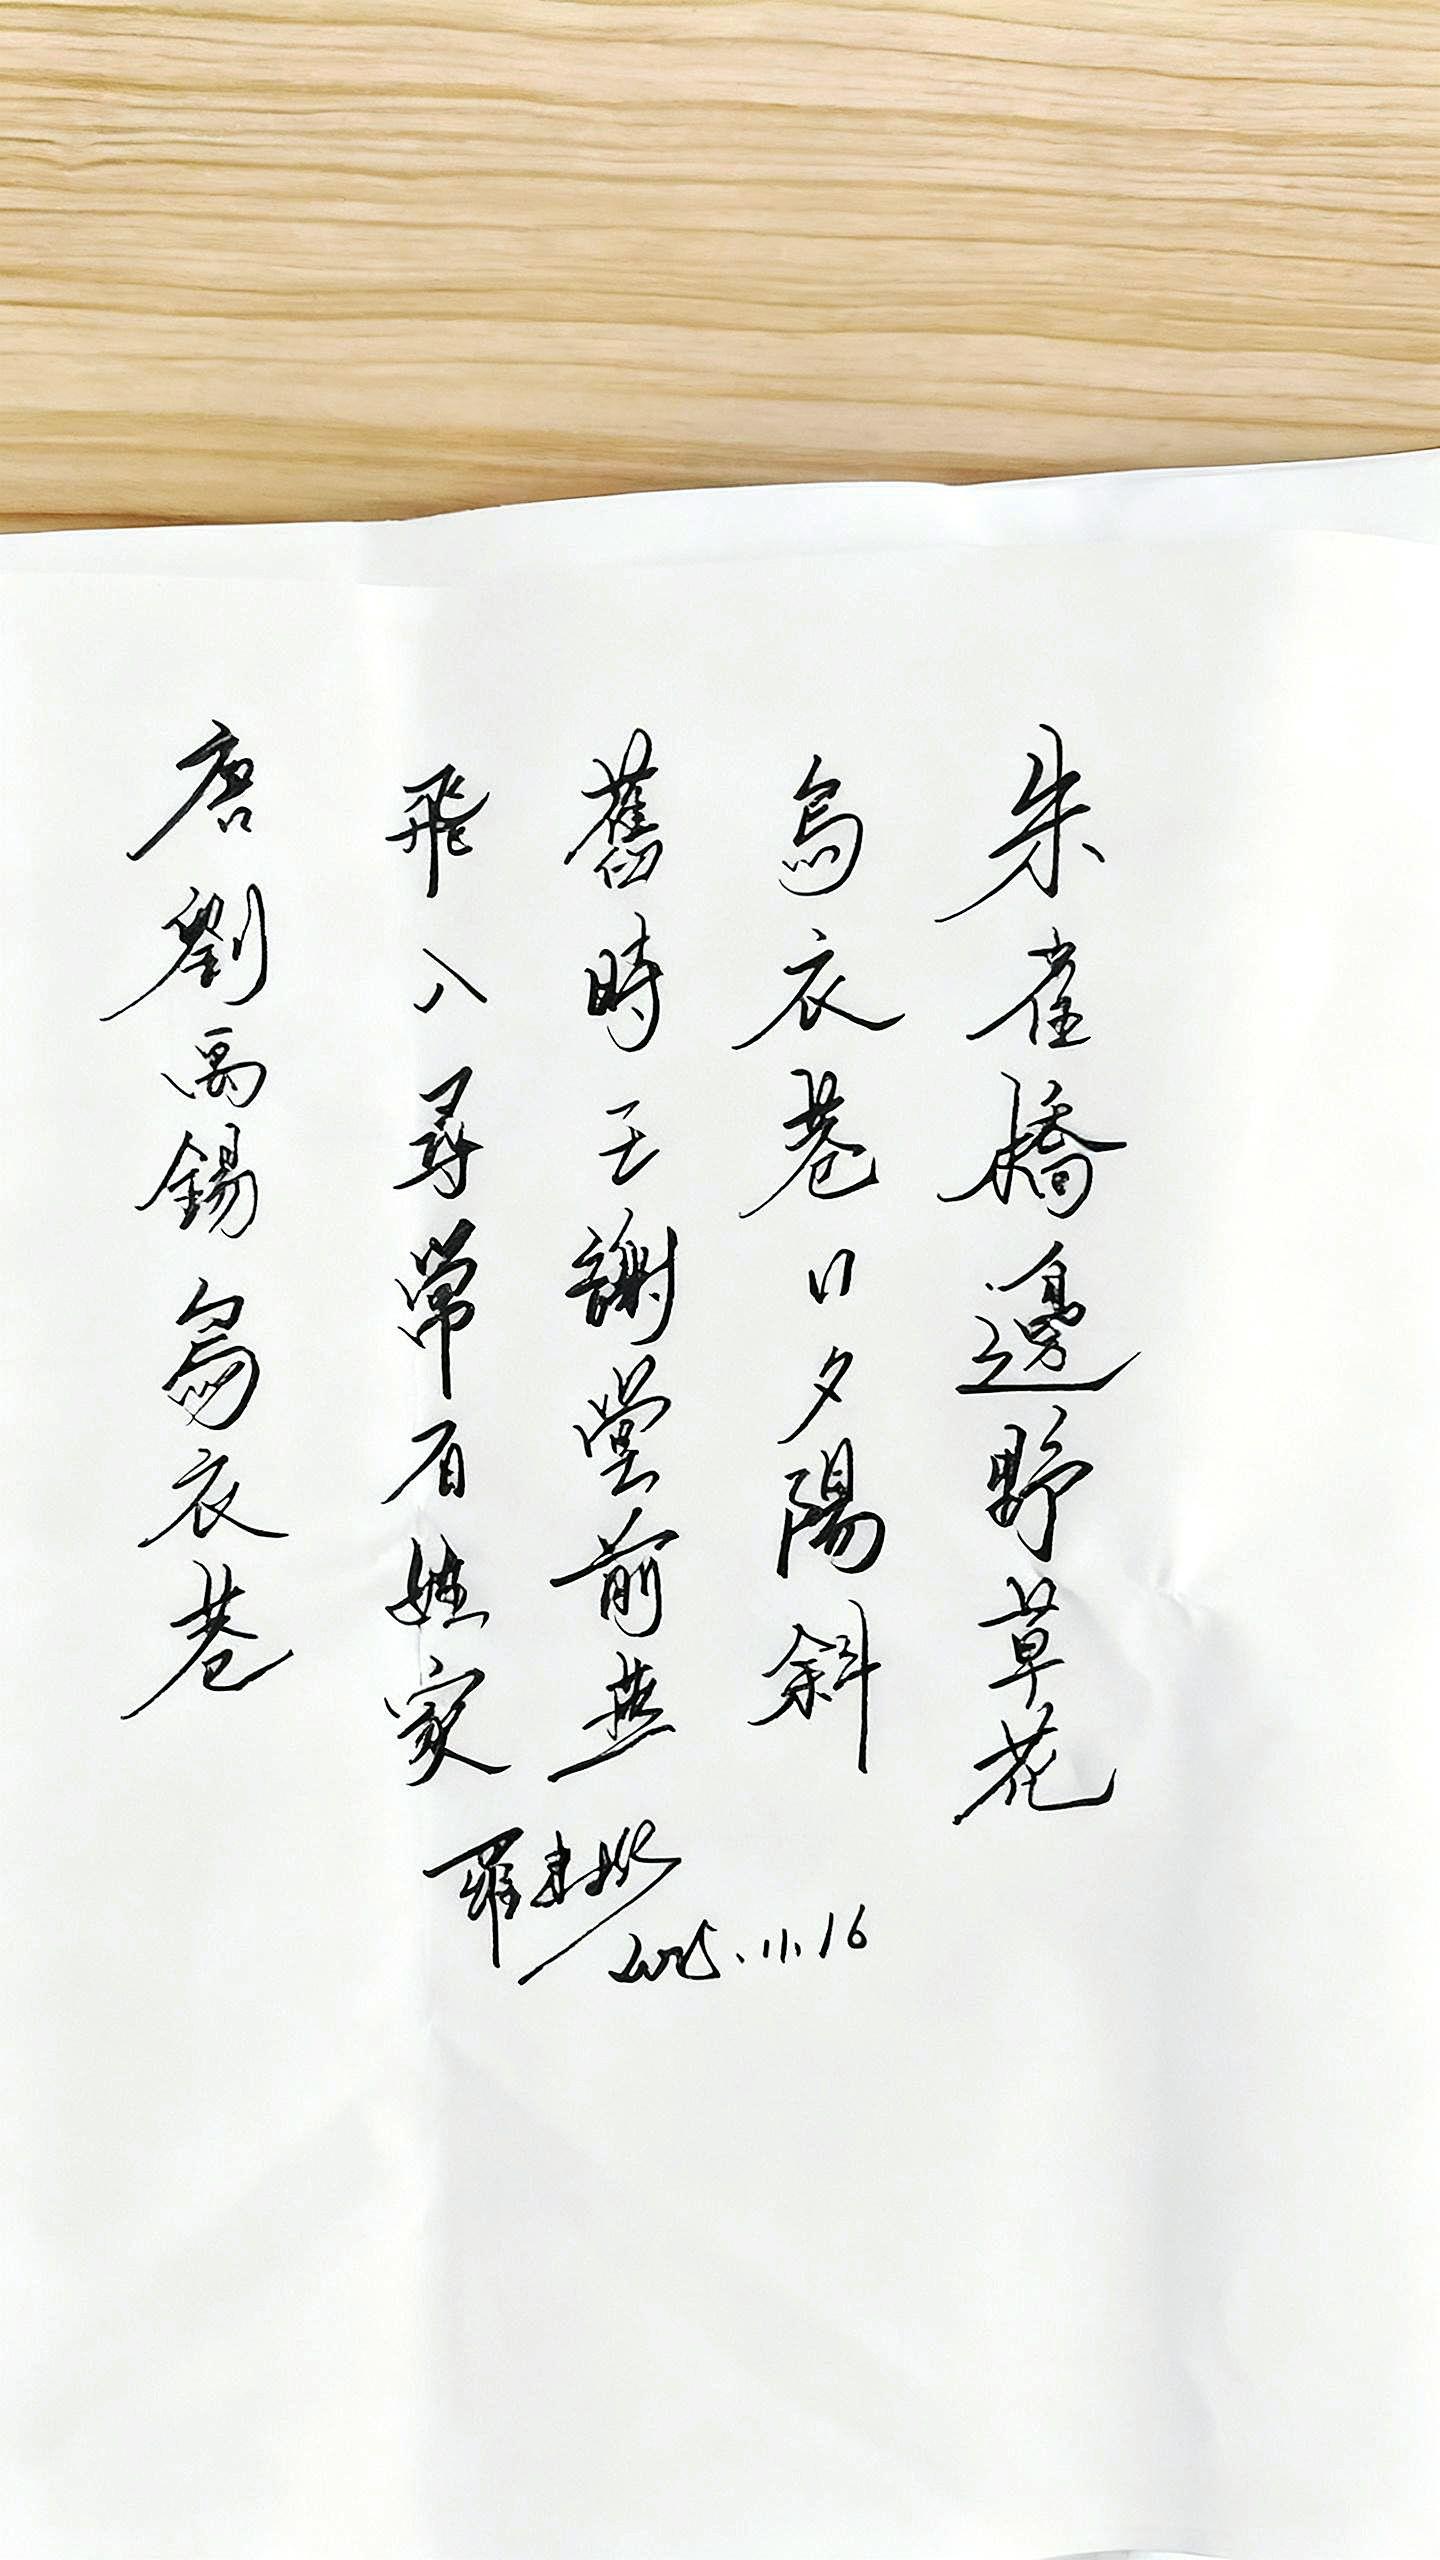 朱雀橋邊野草花
烏衣巷口夕陽斜
舊時王謝堂前燕
飛入尋常百姓家
唐劉禹錫烏衣巷
羅建
2025.11.16